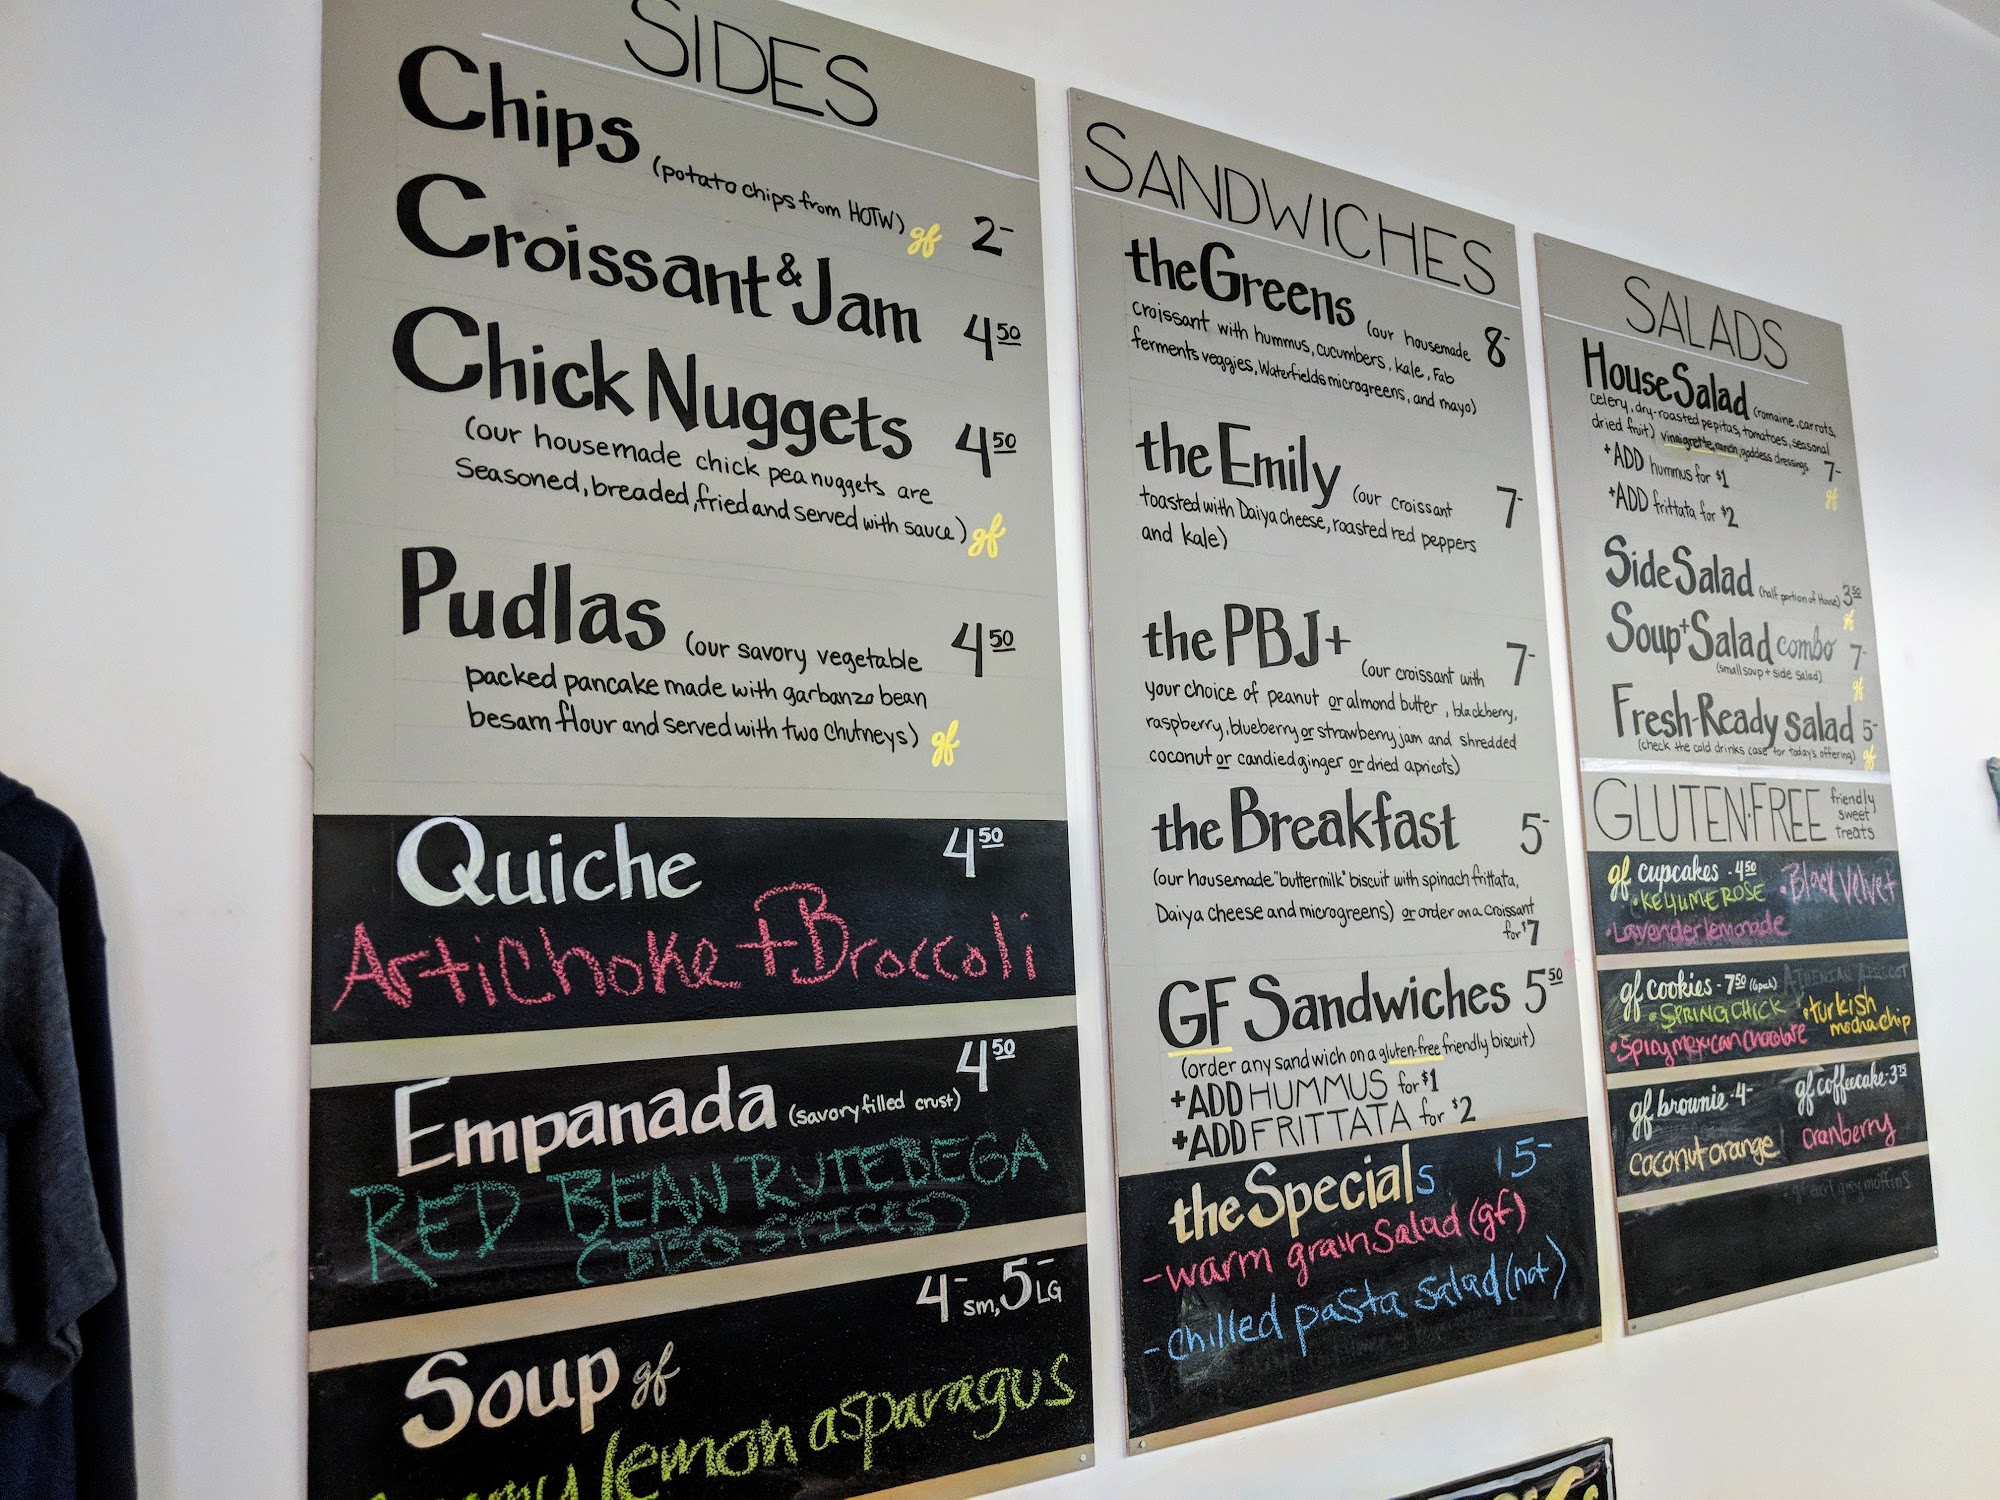 SIDES
Chips
(potato chips from HOTW) gf 2-
Croissant & Jam 4 50
Chick Nuggets 4 50
(our housemade chick pea nuggets are
seasoned, breaded, fried and served with sauce) gf
Pudlas (our savory vegetable 4 50
packed pancake made with garbanzo bean
besam flour and served with two chutneys) gf
Quiche 4 50
Artichoke + Broccoli
Empanada (savory filled crust) 4 50
RED BEAN RUTEBEGA
SPICES)
4- sm, 5- LG
Soup gf
lemon asparagus
SANDWICHES
the Greens (our housemade 8-
croissant with hummus, cucumbers, kale, Fab
ferments veggies, Waterfields microgreens, and mayo)
the Emily (our croissant 7-
toasted with Daiya cheese, roasted red peppers
and kale)
the PBJ+ (our croissant with 7-
your choice of peanut or almond butter, blackberry,
raspberry, blueberry or strawberry jam and shredded
coconut or candied ginger or dried apricots)
the Breakfast 5-
(our housemade "buttermilk" biscuit with spinach frittata,
Daiya cheese and microgreens) or order on a croissant
for $7
GF Sandwiches 5 50
(order any sandwich on a gluten-free friendly biscuit)
+ADD HUMMUS for $1
+ADD FRITTATA for $2
the Specials 5-
- warm grain Salad (gf)
- chilled pasta salad (not)
SALADS
House Salad (romaine, carrots,
celery, dry-roasted pepitas, tomatoes, seasonal
dried fruit) vinaigrette, ranch, goddess dressings 7-
gf
+ADD hummus for $1
+ADD frittata for $2
Side Salad (half portion of House) 3 50
gf
Soup + Salad combo 7-
(small soup + side salad)
gf
Fresh-Ready salad 5-
(check the cold drinks case for today's offering) gf
GLUTEN-FREE friendly
sweet
treats
gf cupcakes - 4 50
• KEY LIME ROSE • Black Velvet
• Lavender lemonade
gf cookies - 7 50 (6pack) ATHENIAN APRICOT
• SPRING CHICK • turkish
mocha chip
• Spicy mexican chocolate
gf brownie - 4- gf coffeecake - 3 75
coconut orange cranberry
• gf earl grey muffins